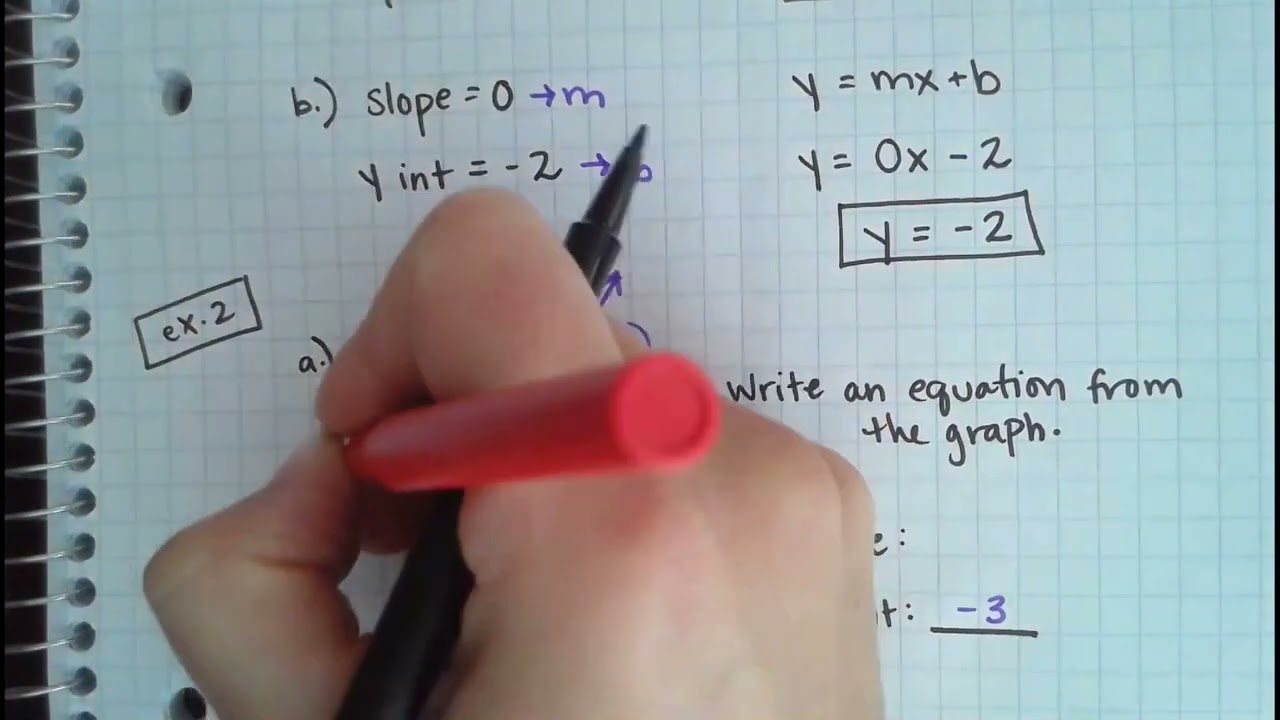 b.) slope = 0 → m
y int = -2 →
y = mx + b
y = 0x - 2
y = -2
ex. 2
a.)
Write an equation from
the graph.
: 
: -3